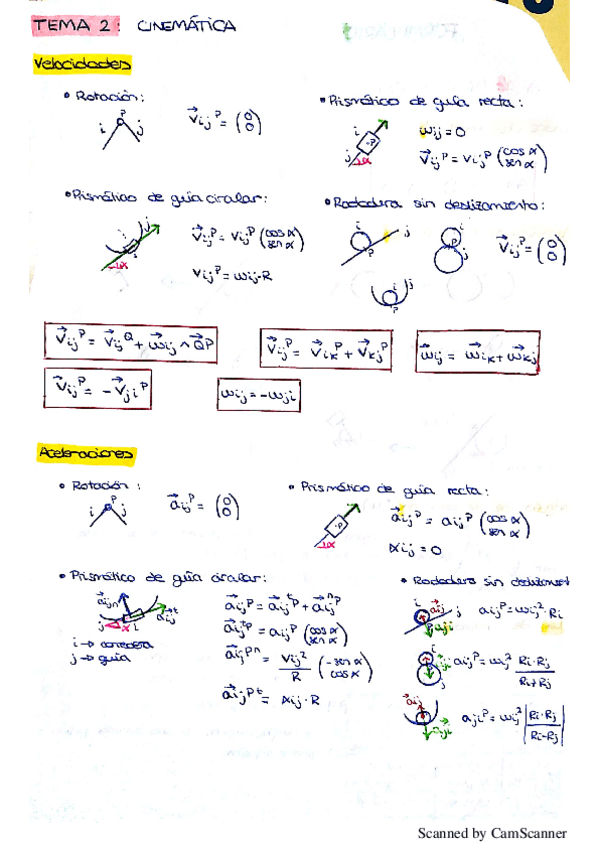 TEMA 2: CINEMÁTICA
Velocidades
• Rotación:
i P j
v⃗ij^P = (0 0)
• Prismático de guía recta:
i P j α
ωij = 0
v⃗ij^P = vij^P (cos α sen α)
• Prismático de guía circular:
i j α
v⃗ij^P = vij^P (cos α sen α)
vij^P = ωij·R
• Rodadera sin deslizamiento:
i j P
i P j
i j P
v⃗ij^P = (0 0)
v⃗ij^P = v⃗ij^Q + ω⃗ij ∧ QP⃗
v⃗ij^P = v⃗ik^P + v⃗kj^P
ω⃗ij = ω⃗ik + ω⃗kj
v⃗ij^P = -v⃗ji^P
ωij = -ωji
Aceleraciones
• Rotación:
i P j
a⃗ij^P = (0 0)
• Prismático de guía recta:
P α
a⃗ij^P = aij^P (cos α sen α)
αij = 0
• Prismático de guía circular:
a⃗ij^n a⃗ij^t
j α i
i → corredera
j → guía
a⃗ij^P = a⃗ij^tP + a⃗ij^nP
a⃗ij^tP = aij^P (cos α sen α)
a⃗ij^Pn = vij²/R (-sen α cos α)
a⃗ij^Pt = αij·R
• Rodadera sin deslizament
i aij j
P aji
aij^P = ωij²·Ri
i j
aij^P = ωij² Ri·Rj/Ri+Rj
aij
aji
aji^P = ωij² |Ri·Rj/Ri-Rj|
Scanned by CamScanner